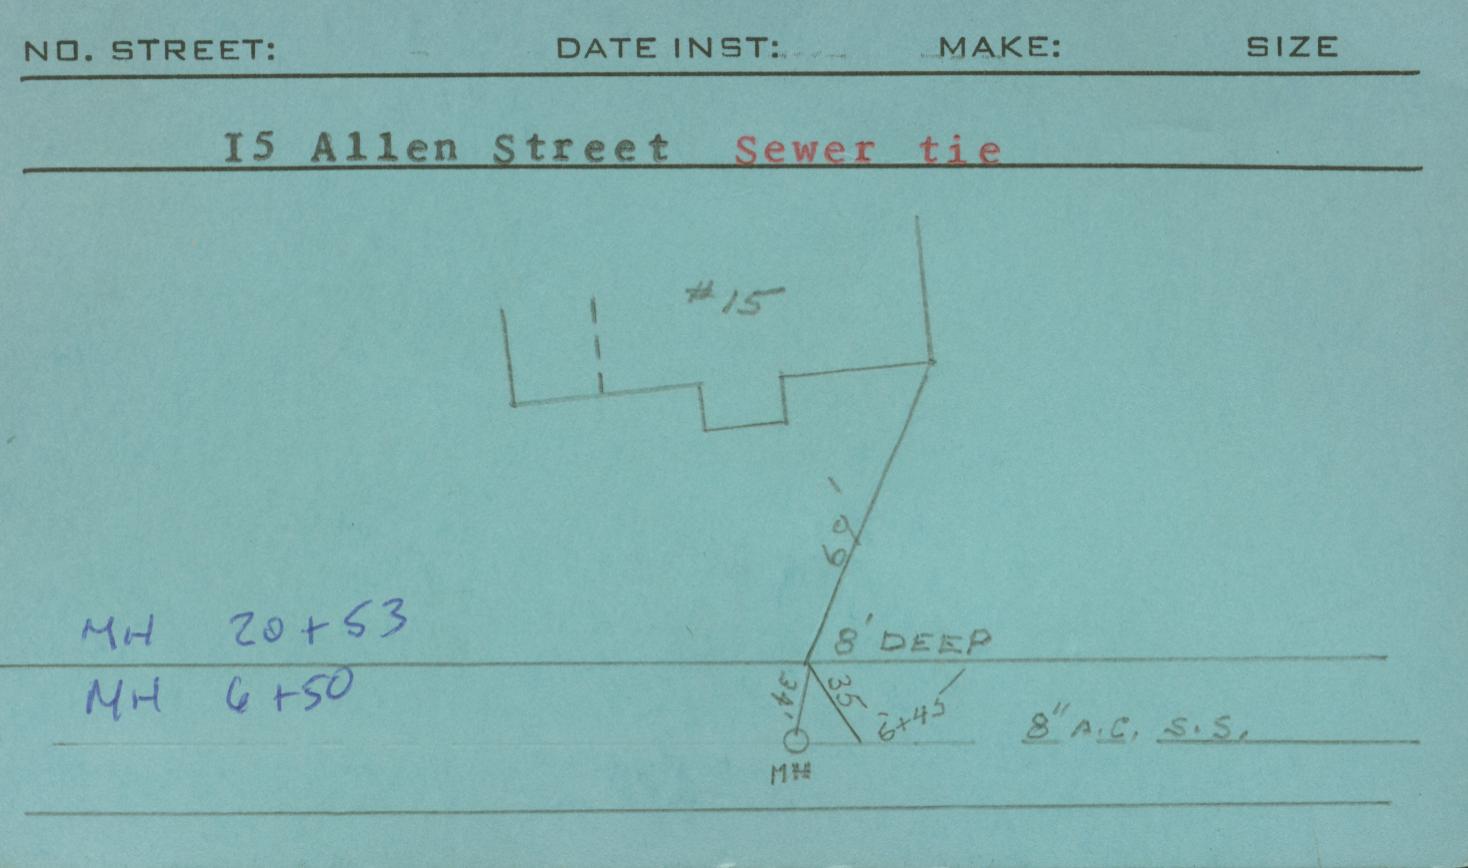 NO. STREET: DATE INST: MAKE: SIZE
I5 Allen Street Sewer tie
#15
69'
MH 20+53
8' DEEP
MH 6+50
34'
35
6+45
8" A.C. S.S.
MH